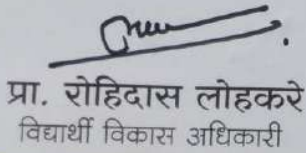 प्रा. रोहिदास लोहकरे
विद्यार्थी विकास अधिकारी